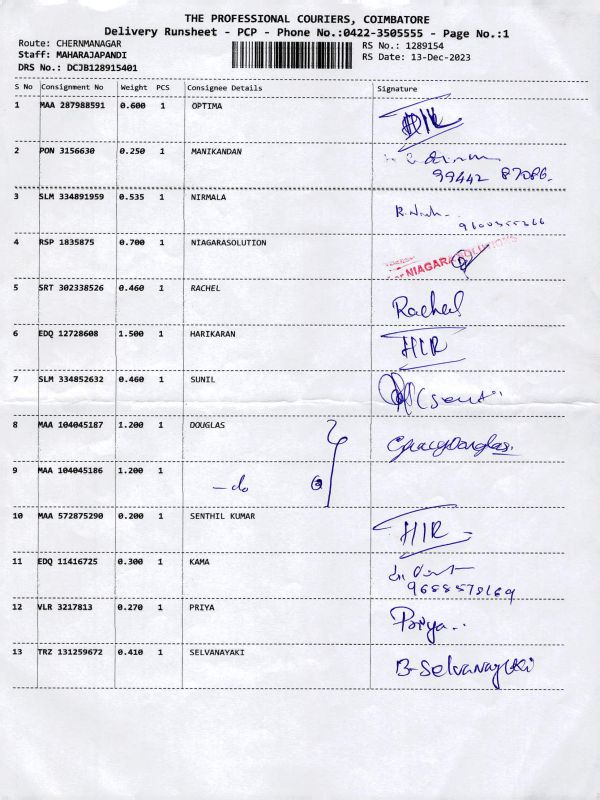 THE PROFESSIONAL COURIERS, COIMBATORE
Delivery Runsheet - PCP - Phone No.:0422-3505555 - Page No.:1
Route: CHERNMANAGAR
RS No.: 1289154
Staff: MAHARAJAPANDI
RS Date: 13-Dec-2023
DRS No.: DCJB128915401
S No Consignment No Weight PCS Consignee Details Signature
1 MAA 287988591 0.600 1 OPTIMA
2 PON 3156630 0.250 1 MANIKANDAN
99442 87086.
3 SLM 334891959 0.535 1 NIRMALA
4 RSP 1835875 0.700 1 NIAGARASOLUTION
NIAGARA SOLUTIONS
5 SRT 302338526 0.460 1 RACHEL
Rachel
6 EDQ 12728608 1.500 1 HARIKARAN
HIR
7 SLM 334852632 0.460 1 SUNIL
8 MAA 104045187 1.200 1 DOUGLAS
9 MAA 104045186 1.200 1 -do
10 MAA 572875290 0.200 1 SENTHIL KUMAR
HIR
11 EDQ 11416725 0.300 1 KAMA
9658578169
12 VLR 3217813 0.270 1 PRIYA
Priya..
13 TRZ 131259672 0.410 1 SELVANAYAKI
B-Selvanayaki